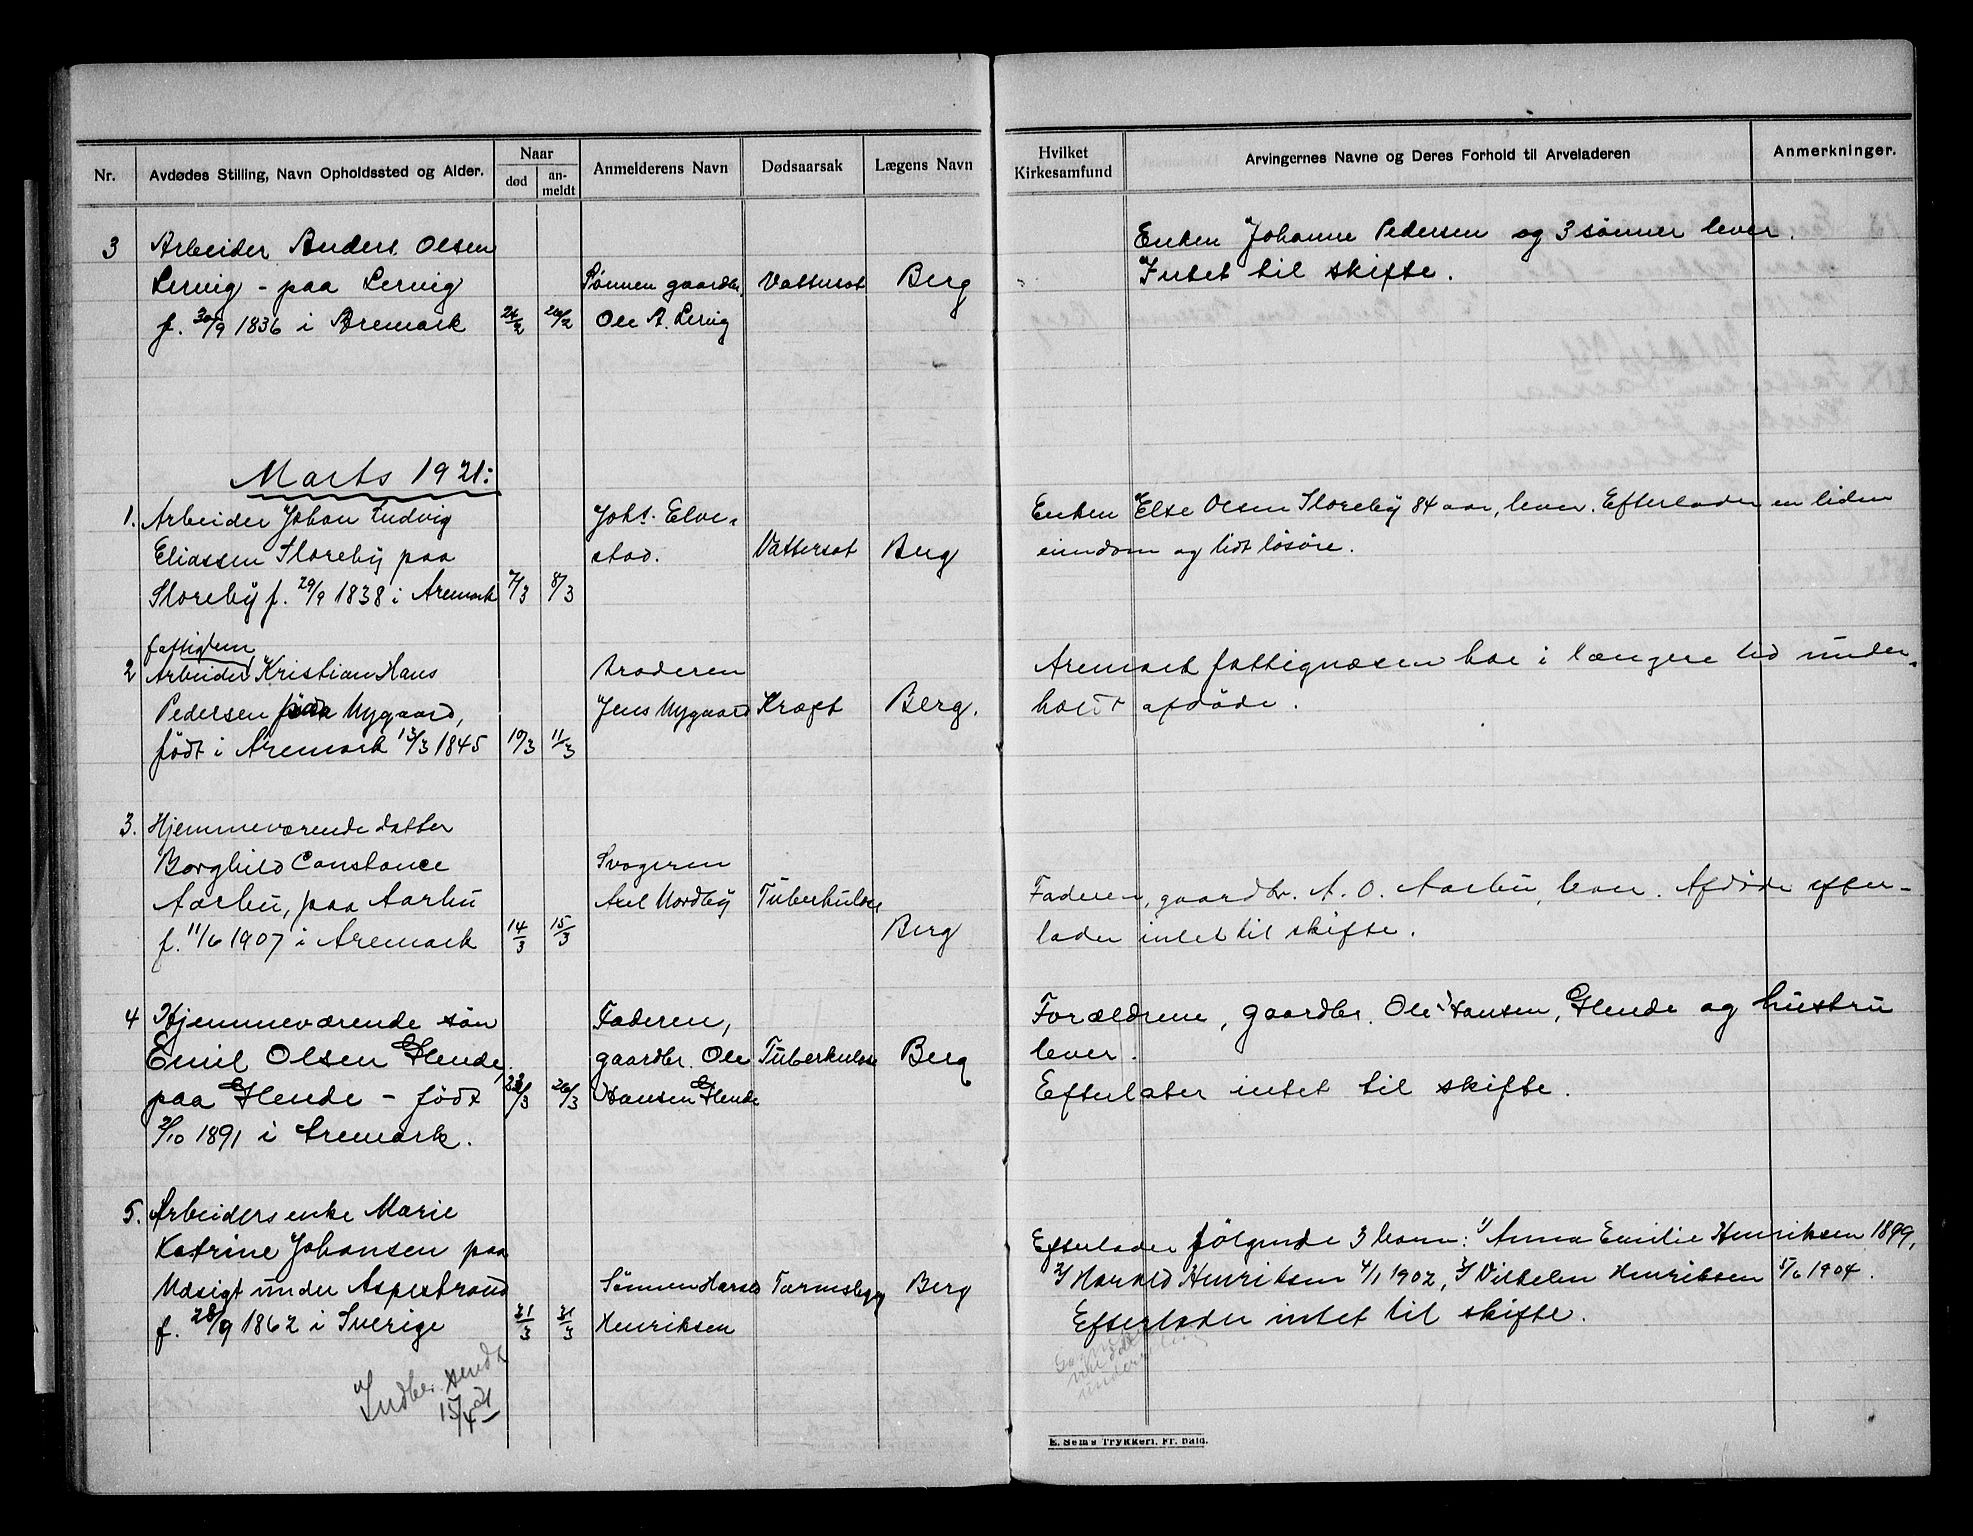 Nr.
Avdødes Stilling, Navn Opholdssted og Alder.
Naar
død
an-
meldt
Anmelderens Navn
Dødsaarsak
Lægens Navn
Hvilket
Kirkesamfund
Arvingernes Navne og Deres Forhold til Arveladeren
Anmerkninger.
3 Arbeider Anders Olsen
Lervig - paa Lervig
f. 30/9 1836 i Aremark
Sønnen gaardbr.
Ole A. Lervig
Vattersot
Berg
Enken Johanne Pedersen og 3 sønner lever.
Intet til skifte.
Marts 1921:
1. Arbeider Johan Ludvig
Eliassen Storeby paa
Storeby f. 29/9 1838 i Aremark
7/3
8/3
Johs. Elve-
stad.
Vattersot
Berg
Enken Else Olsen Storeby 84 aar, lever. Efterlader en liden
eiendom og lidt løsøre.
fattiglem
2 Arbeider Kristian Hans
Pedersen paa Nygaard,
født i Aremark 13/3 1845
10/3
11/3
Broderen
Jens Nygaard
Kræft
Berg.
Aremark fattigvæsen har i længere tid under-
holdt afdøde.
3. Hjemmeværende datter
Borghild Constance
Aarbu, paa Aarbu
f. 11/6 1907 i Aremark
14/3
15/3
Svogeren
Axel Nordby
Tuberkulose
Berg
Faderen, gaardbr. A. O. Aarbu, lever. Afdøde efter-
lader intet til skifte.
4 Hjemmeværende søn
Emil Olsen Glende,
paa Glende - født
2/10 1891 i Aremark.
26/3
Faderen,
gaardbr. Ole
Hansen Glende
Tuberkulose
Berg
Forældrene, gaardbr. Ole Hansen, Glende og hustru
lever.
Efterlater intet til skifte.
5. Arbeiders enke Marie
Katrine Johansen paa
Udsigt under Aspestrand
f. 28/9 1862 i Sverige
21/3
31/3
Sønnen Harald
Henriksen
Tarmslyng
Berg
Efterlader følgende 3 barn: 1/ Anna Emilie Henriksen 1899,
2/ Harald Henriksen 4/1 1902, 3/ Vilhelm Henriksen 5/6 1904.
Efterlader intet til skifte.
Indber. sendt
15/4 21
E. Sems Trykkeri. Fr. hald.